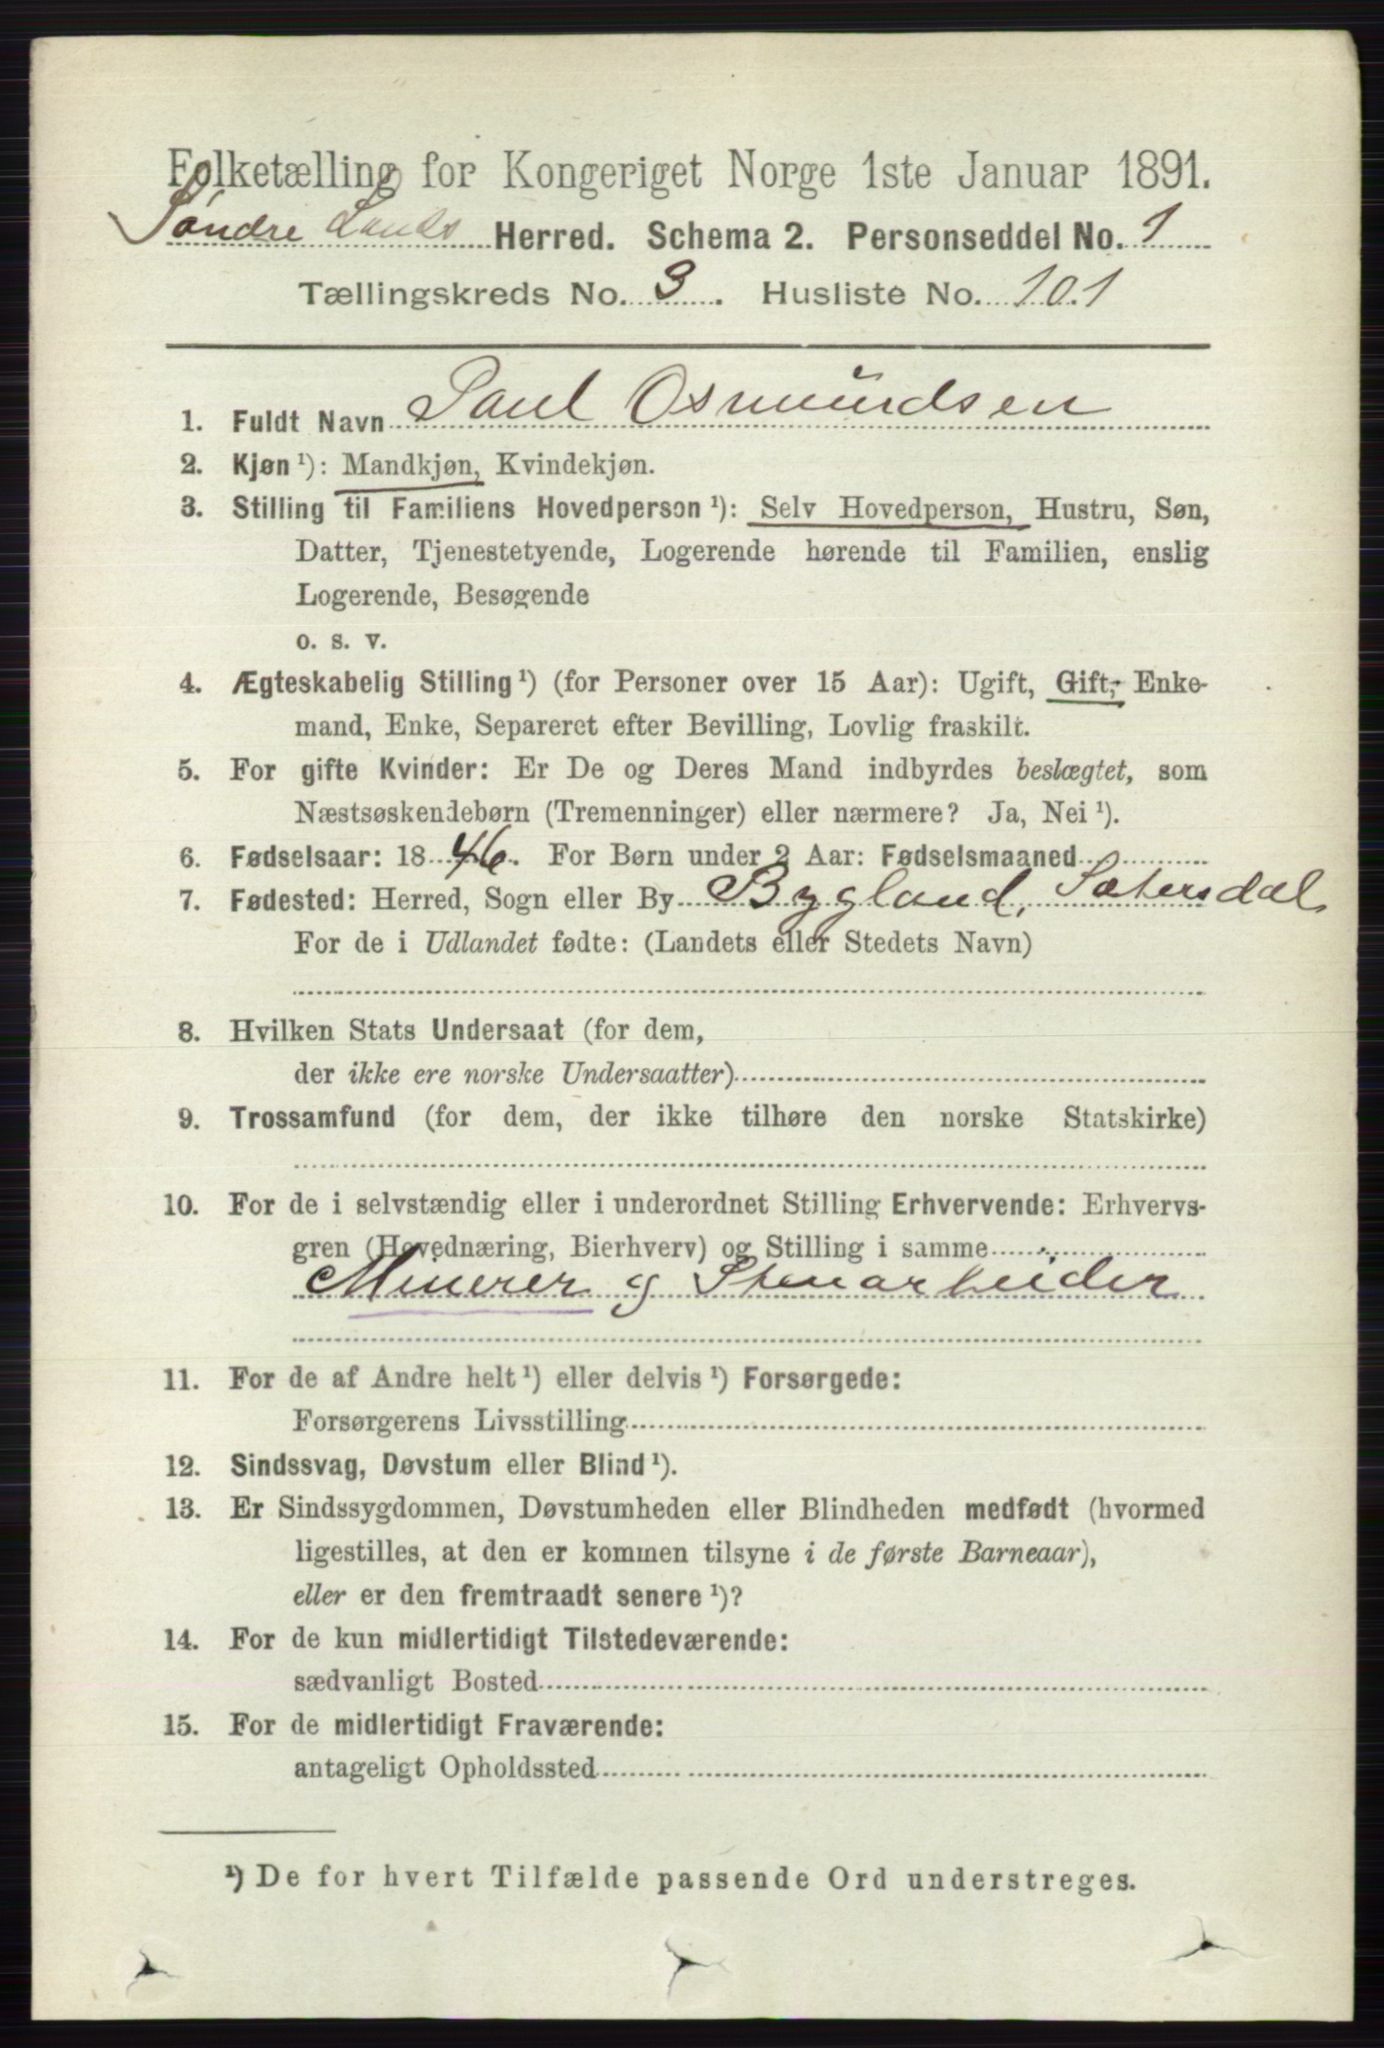 Folketælling for Kongeriget Norge 1ste Januar 1891.
Søndre Lands Herred. Schema 2. Personseddel No. 1
Tællingskreds No. 3. Husliste No. 101
1. Fuldt Navn Paul Osmundsen
2. Kjøn ¹): Mandkjøn, Kvindekjøn.
3. Stilling til Familiens Hovedperson ¹): Selv Hovedperson, Hustru, Søn,
Datter, Tjenestetyende, Logerende hørende til Familien, enslig
Logerende, Besøgende
o. s. v.
4. Ægteskabelig Stilling ¹) (for Personer over 15 Aar): Ugift, Gift, Enke-
mand, Enke, Separeret efter Bevilling, Lovlig fraskilt.
5. For gifte Kvinder: Er De og Deres Mand indbyrdes beslægtet, som
Næstsøskendebørn (Tremenninger) eller nærmere? Ja, Nei ¹).
6. Fødselsaar: 1846. For Børn under 2 Aar: Fødselsmaaned
7. Fødested: Herred, Sogn eller By Bygland, Sætersdal
For de i Udlandet fødte: (Landets eller Stedets Navn)
8. Hvilken Stats Undersaat (for dem,
der ikke ere norske Undersaatter)
9. Trossamfund (for dem, der ikke tilhøre den norske Statskirke)
10. For de i selvstændig eller i underordnet Stilling Erhvervende: Erhvervs-
gren (Hovednæring, Bierhverv) og Stilling i samme
Minerer og Stenarbeider
11. For de af Andre helt ¹) eller delvis ¹) Forsørgede:
Forsørgerens Livsstilling
12. Sindssvag, Døvstum eller Blind ¹).
13. Er Sindssygdommen, Døvstumheden eller Blindheden medfødt (hvormed
ligestilles, at den er kommen tilsyne i de første Barneaar),
eller er den fremtraadt senere ¹)?
14. For de kun midlertidigt Tilstedeværende:
sædvanligt Bosted
15. For de midlertidigt Fraværende:
antageligt Opholdssted
¹) De for hvert Tilfælde passende Ord understreges.